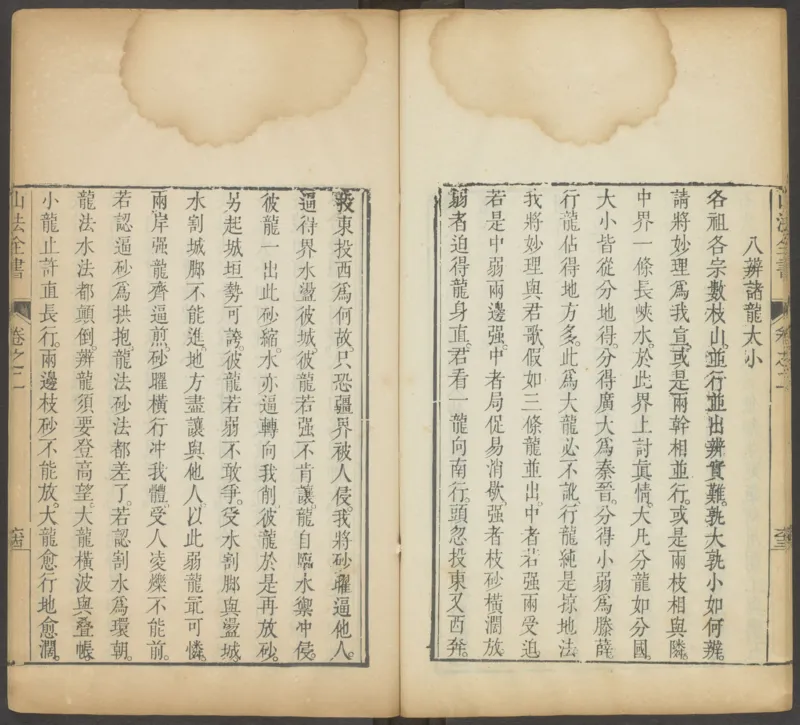 八辨諸龍大小
各祖各宗數枝山。並行並出辨實難。孰大孰小如何辨。
請將妙理爲我宣。或是兩幹相並行。或是兩枝相與隣。
中界一條長峽水。於此界上討眞情。大凡分龍如分國。
大小皆從分地得。分得廣大爲秦晉。分得小弱爲滕薛。
行龍佔得地方多。此爲大龍必不訛。行龍純是掠地法。
我將妙理與君歌。假如三條龍並出。中者若强兩受迫。
若是中弱兩邊强。中者局促易消歇。强者枝砂橫濶放。
弱者迫得龍身直。君看一龍向南行。頭忽投東又西奔。
投東投西爲何故。只恐疆界被人侵。我將砂曜逼他人。
逼得界水盪彼城。彼龍若强不肯讓。龍自臨水禦冲侵。
彼龍一出此砂縮。水亦逼轉向我削。彼龍於是再放砂。
另起城垣勢可誇。彼龍若弱不敢爭。受水割脚與盪城。
水割城脚不能進。地方盡讓與他人。以此弱龍最可憐。
兩岸强龍齊逼煎。砂曜橫行冲我體。受人凌爍不能前。
若認逼砂爲拱抱。龍法砂法都差了。若認割水爲環朝。
龍法水法都顛倒。辨龍須要登高望。大龍橫波與叠帳。
小龍止許直長行。兩邊枝砂不能放。大龍愈行地愈濶。
山法全書
卷之二